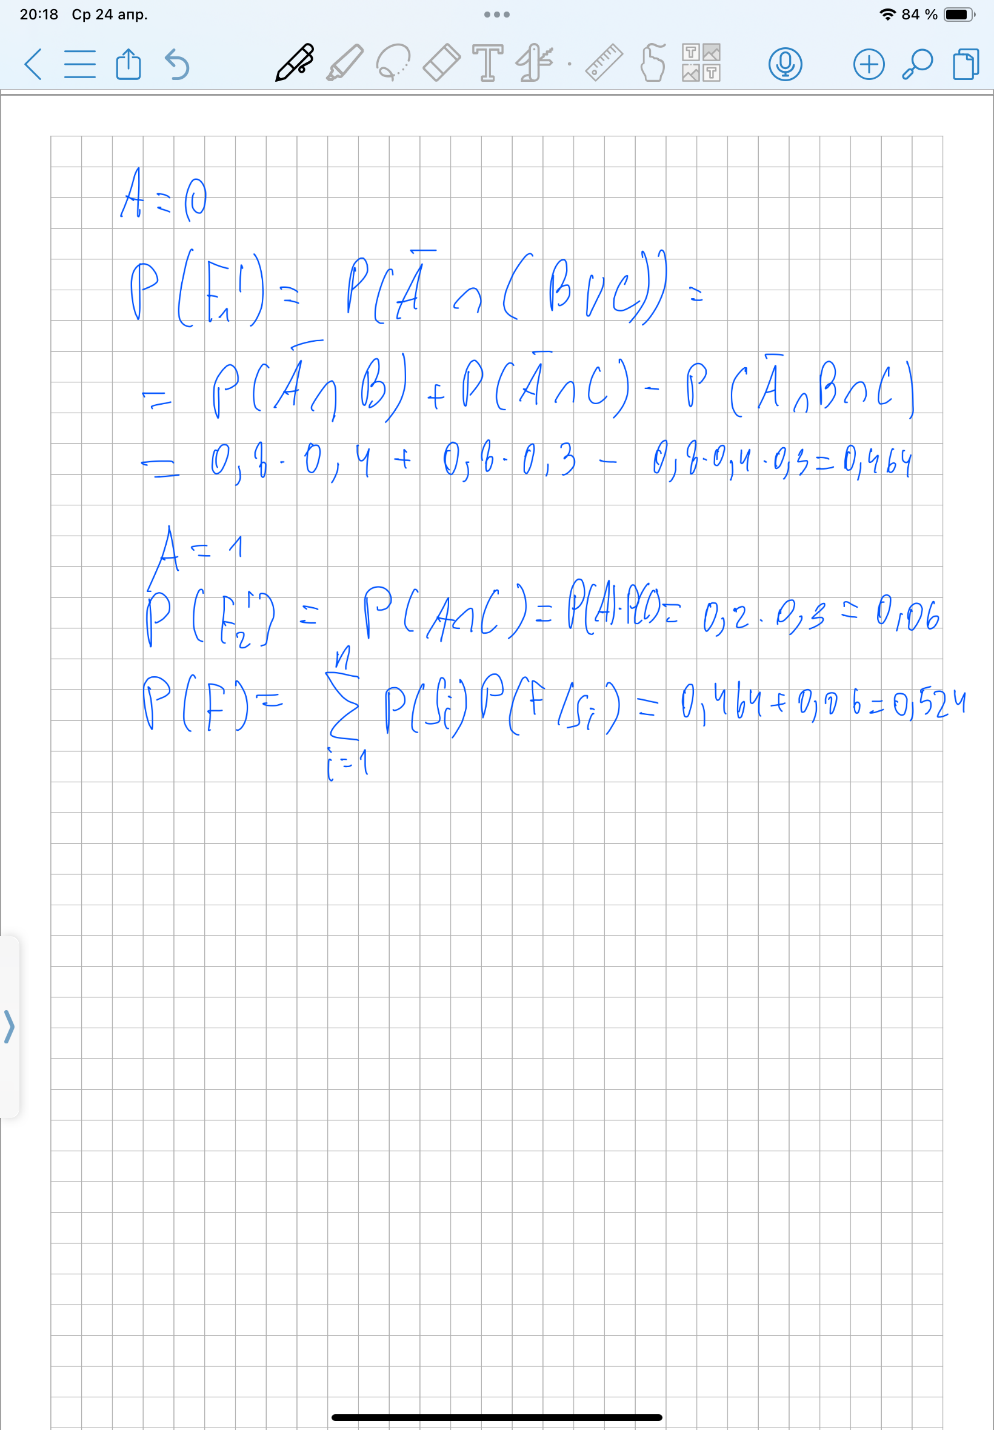 20:18 Ср 24 апр. 84 %
A=0
P(F₁')= P(Ā∩(B∪C))=
= P(Ā∩B)+P(Ā∩C)-P(Ā∩B∩C)
= 0,8·0,4+0,8·0,3-0,8·0,4·0,3=0,464
A=1
P(F₂')= P(A∩C)=P(A)·P(C)=0,2·0,3=0,06
P(F)= n∑i=1 P(Si)P(F/Si)=0,464+0,06=0,524